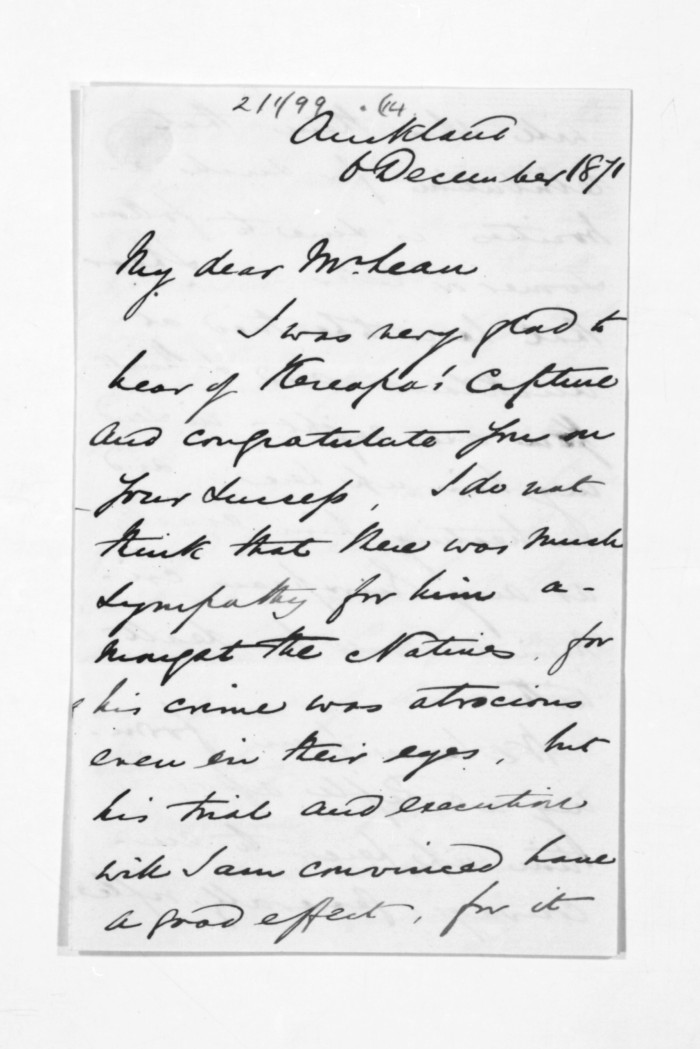 21/1/99 . (14
Auckland
6 December 1871
My dear McLean
I was very glad to
hear of Kereopa's Capture
and congratulate you on
your success, I do not
think that there was much
sympathy for him a-
mongst the Natives, for
his crime was atrocious
even in their eyes, but
his trial and execution
will I am convinced have
a good effect, for it